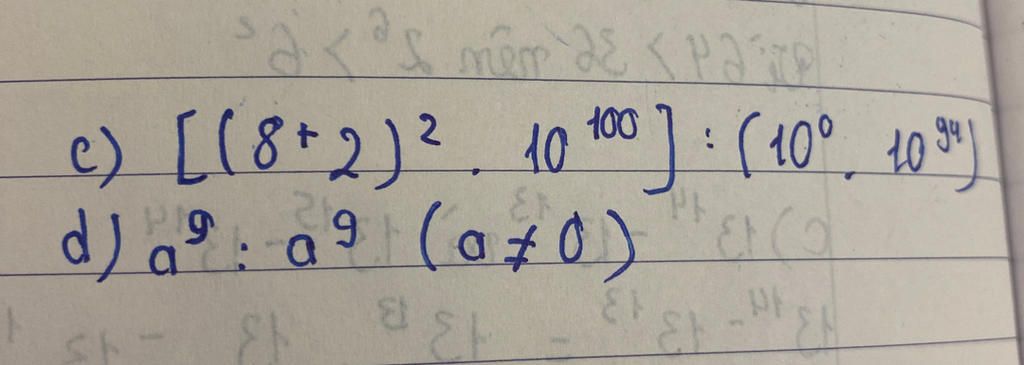 c) [(8+2)² . 10¹⁰⁰] : (10⁰ . 10⁹⁴)
d) a⁹ : a⁹ (a ≠ 0)